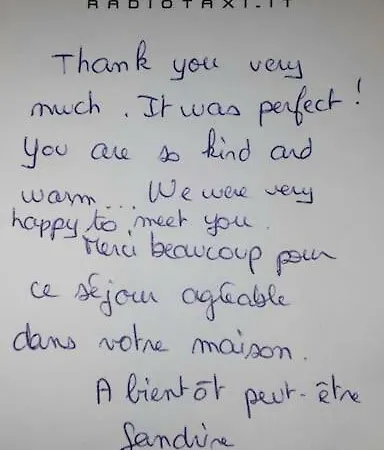 RADIOTAXI.IT
Thank you very
much . It was perfect !
You are so kind and
warm... We were very
happy to meet you.
Merci beaucoup pour
ce séjour agréable
dans votre maison.
A bientôt peut-être
Sandrine